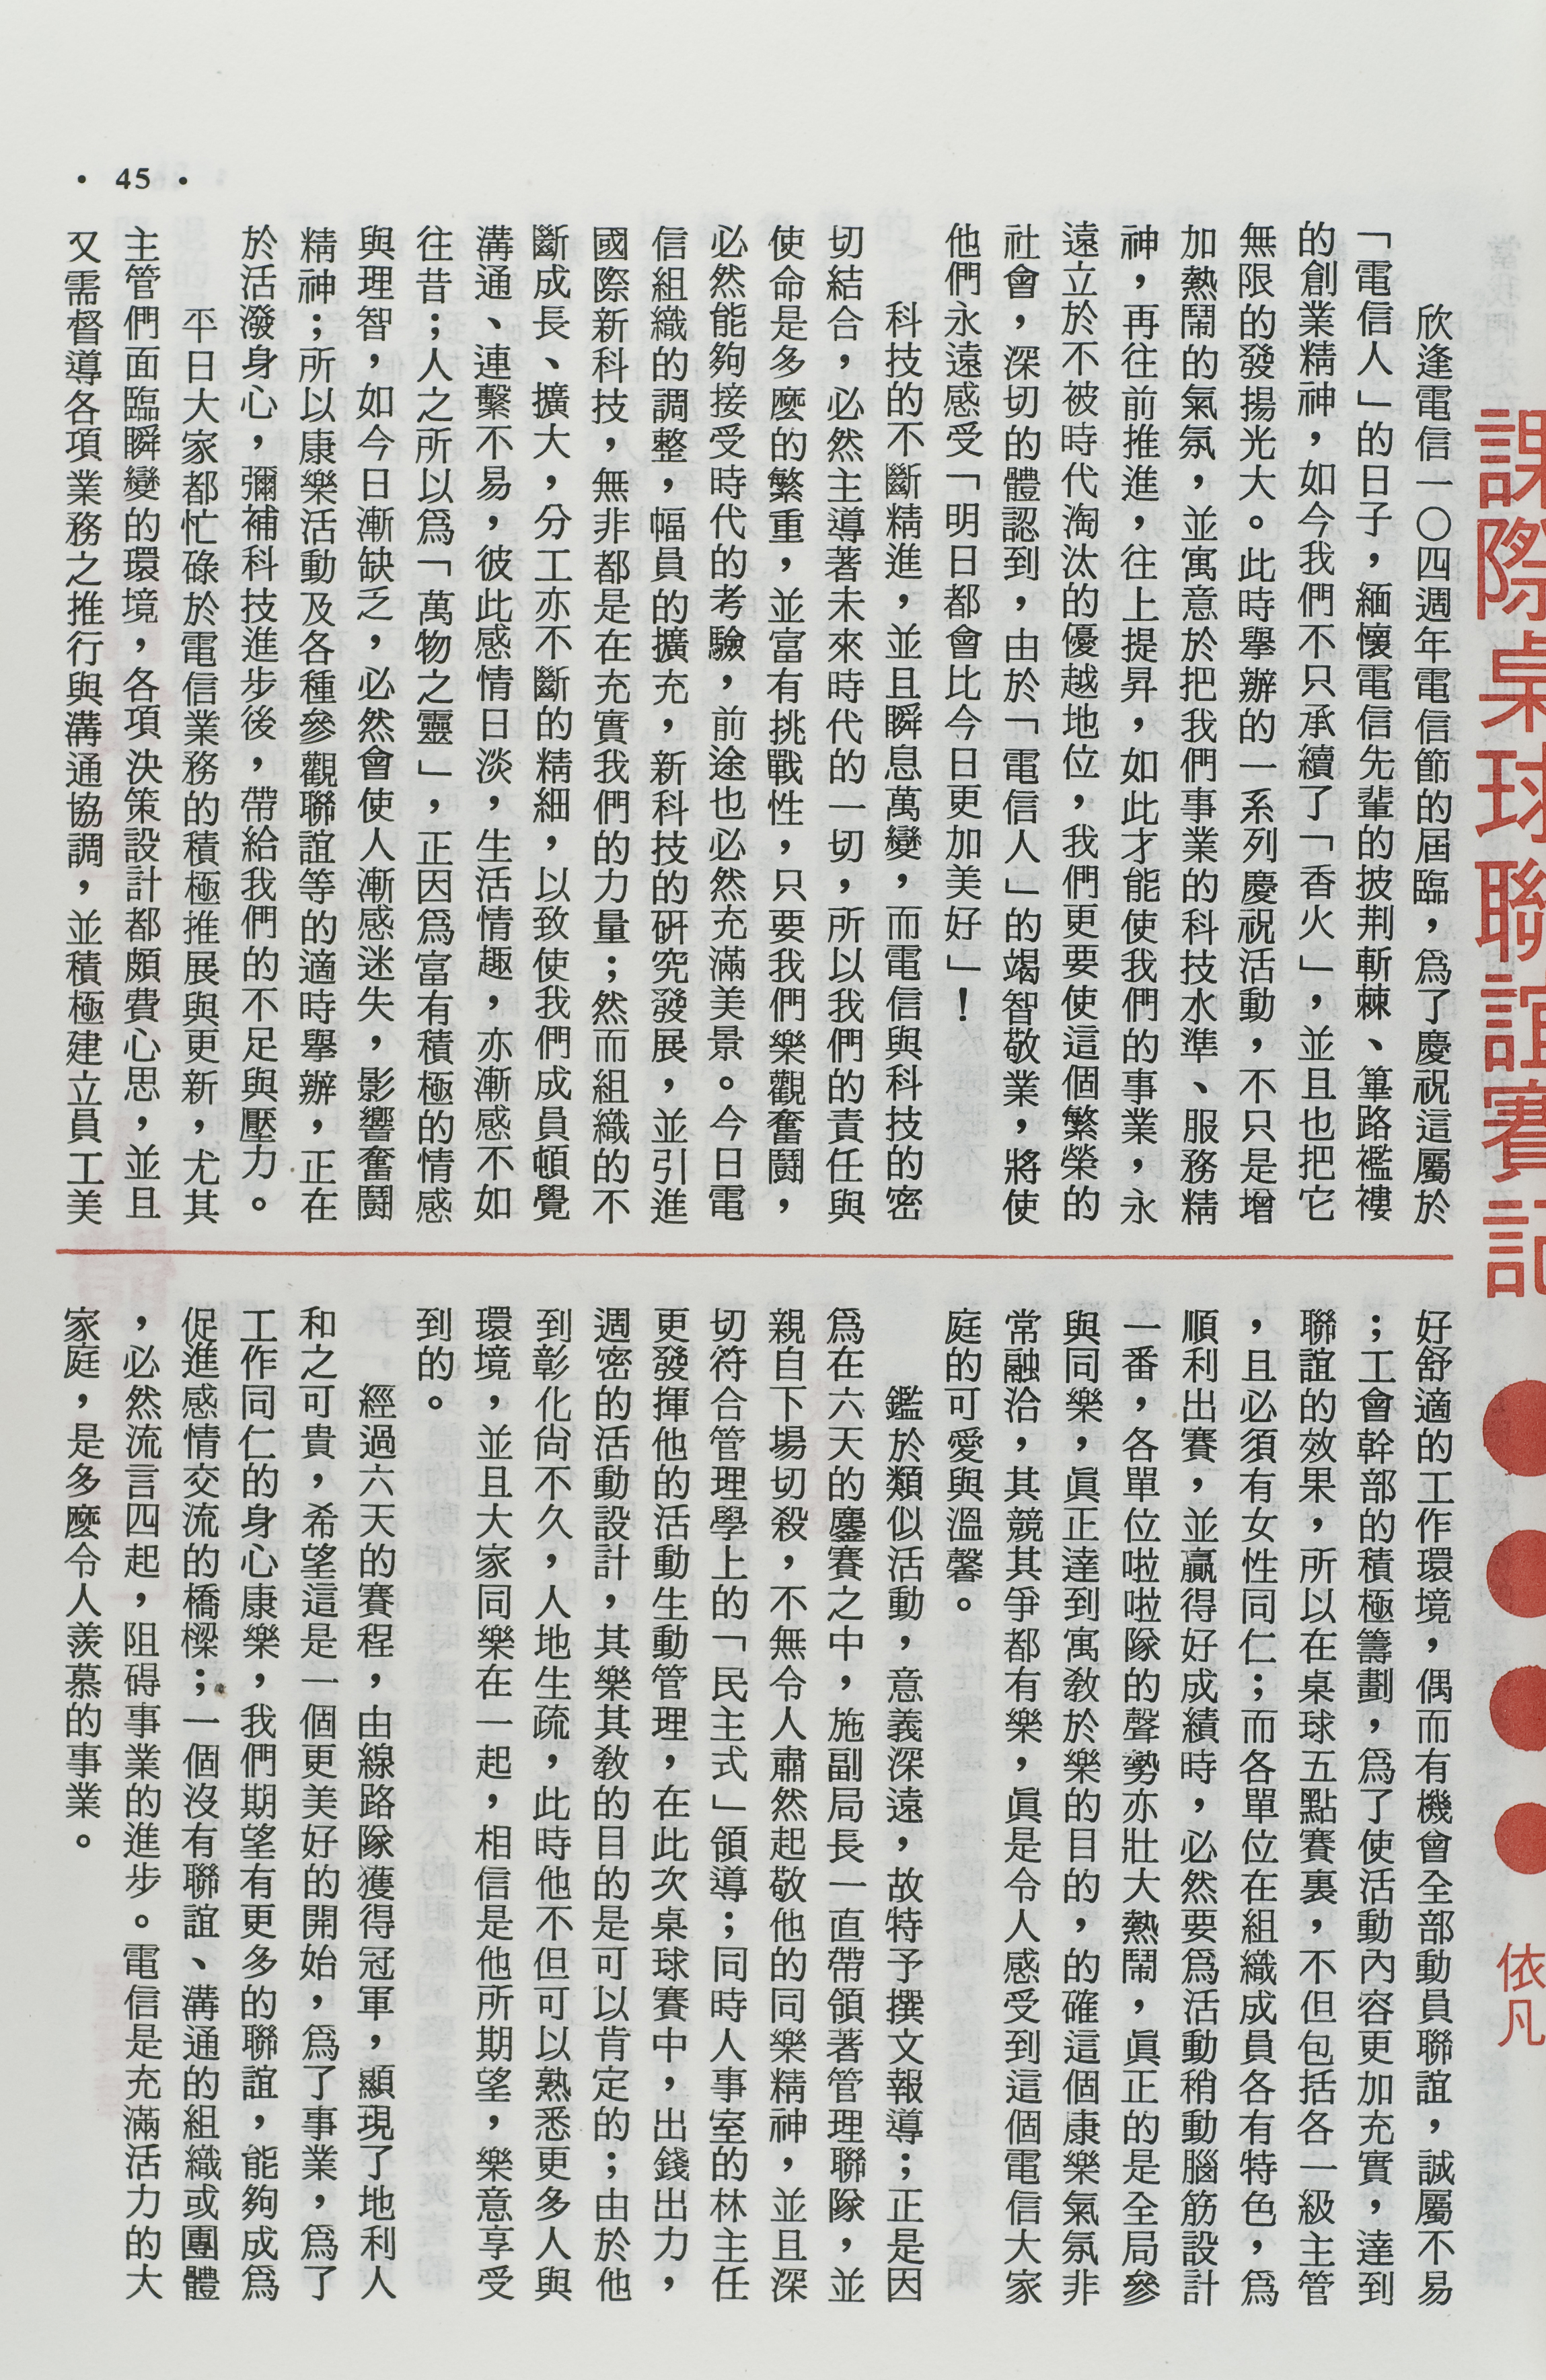 課際桌球聯誼賽記
依凡
欣逢電信一〇四週年電信節的屆臨，爲了慶祝這屬於
「電信人」的日子，緬懷電信先輩的披荆斬棘、篳路襤褸
的創業精神，如今我們不只承續了「香火」，並且也把它
無限的發揚光大。此時擧辦的一系列慶祝活動，不只是增
加熱鬧的氣氛，並寓意於把我們事業的科技水準、服務精
神，再往前推進，往上提昇，如此才能使我們的事業，永
遠立於不被時代淘汰的優越地位，我們更要使這個繁榮的
社會，深切的體認到，由於「電信人」的竭智敬業，將使
他們永遠感受「明日都會比今日更加美好」！
科技的不斷精進，並且瞬息萬變，而電信與科技的密
切結合，必然主導著未來時代的一切，所以我們的責任與
使命是多麽的繁重，並富有挑戰性，只要我們樂觀奮鬪，
必然能夠接受時代的考驗，前途也必然充滿美景。今日電
信組織的調整，幅員的擴充，新科技的研究發展，並引進
國際新科技，無非都是在充實我們的力量；然而組織的不
斷成長、擴大，分工亦不斷的精細，以致使我們成員頓覺
溝通、連繫不易，彼此感情日淡，生活情趣，亦漸感不如
往昔；人之所以爲「萬物之靈」，正因爲富有積極的情感
與理智，如今日漸缺乏，必然會使人漸感迷失，影響奮鬪
精神；所以康樂活動及各種參觀聯誼等的適時擧辦，正在
於活潑身心，彌補科技進步後，帶給我們的不足與壓力。
平日大家都忙碌於電信業務的積極推展與更新，尤其
主管們面臨瞬變的環境，各項決策設計都頗費心思，並且
又需督導各項業務之推行與溝通協調，並積極建立員工美
好舒適的工作環境，偶而有機會全部動員聯誼，誠屬不易
；工會幹部的積極籌劃，爲了使活動內容更加充實，達到
聯誼的效果，所以在桌球五點賽裏，不但包括各一級主管
，且必須有女性同仁；而各單位在組織成員各有特色，爲
順利出賽，並贏得好成績時，必然要爲活動稍動腦筋設計
一番，各單位啦啦隊的聲勢亦壯大熱鬧，眞正的是全局參
與同樂，眞正達到寓敎於樂的目的，的確這個康樂氣氛非
常融洽，其競其爭都有樂，眞是令人感受到這個電信大家
庭的可愛與溫馨。
鑑於類似活動，意義深遠，故特予撰文報導；正是因
爲在六天的鏖賽之中，施副局長一直帶領著管理聯隊，並
親自下場切殺，不無令人肅然起敬他的同樂精神，並且深
切符合管理學上的「民主式」領導；同時人事室的林主任
更發揮他的活動生動管理，在此次桌球賽中，出錢出力，
週密的活動設計，其樂其敎的目的是可以肯定的；由於他
到彰化尙不久，人地生疏，此時他不但可以熟悉更多人與
環境，並且大家同樂在一起，相信是他所期望，樂意享受
到的。
經過六天的賽程，由線路隊獲得冠軍，顯現了地利人
和之可貴，希望這是一個更美好的開始，爲了事業，爲了
工作同仁的身心康樂，我們期望有更多的聯誼，能夠成爲
促進感情交流的橋樑；一個沒有聯誼、溝通的組織或團體
，必然流言四起，阻碍事業的進步。電信是充滿活力的大
家庭，是多麽令人羨慕的事業。
• 45 •